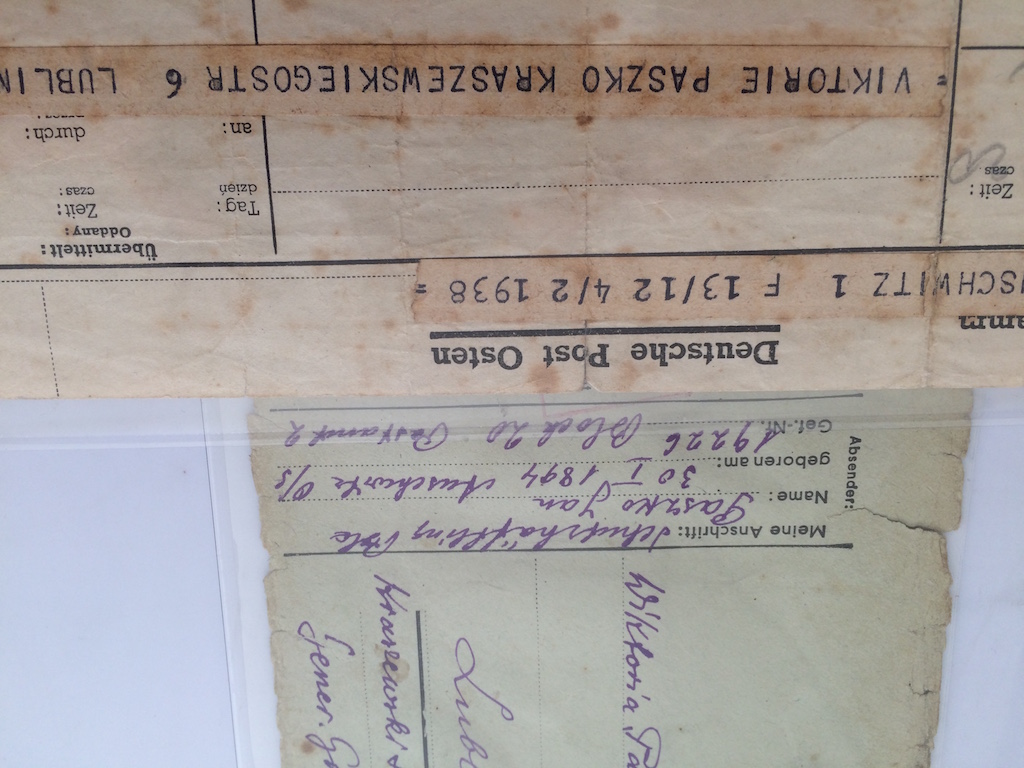 Viktoria Pa
Lub
Kraszewski
Gener. G
Absender:
Meine Anschrift: Schutzhäftling Pole
Name: Paszko Jan
geboren am: 30 I 1894 Auschwitz O/S
Gef.-Nr. 19226 Block 20 Postamt 2
Deutsche Post Osten
USCHWITZ 1 F 13/12 4/2 1938 =
Übermittelt:
Oddany:
Zeit:
czas
Tag: Zeit:
dzień czas:
an: durch:
= VIKTORIE PASZKO KRASZEWSKIEGOSTR 6 LUBLIN